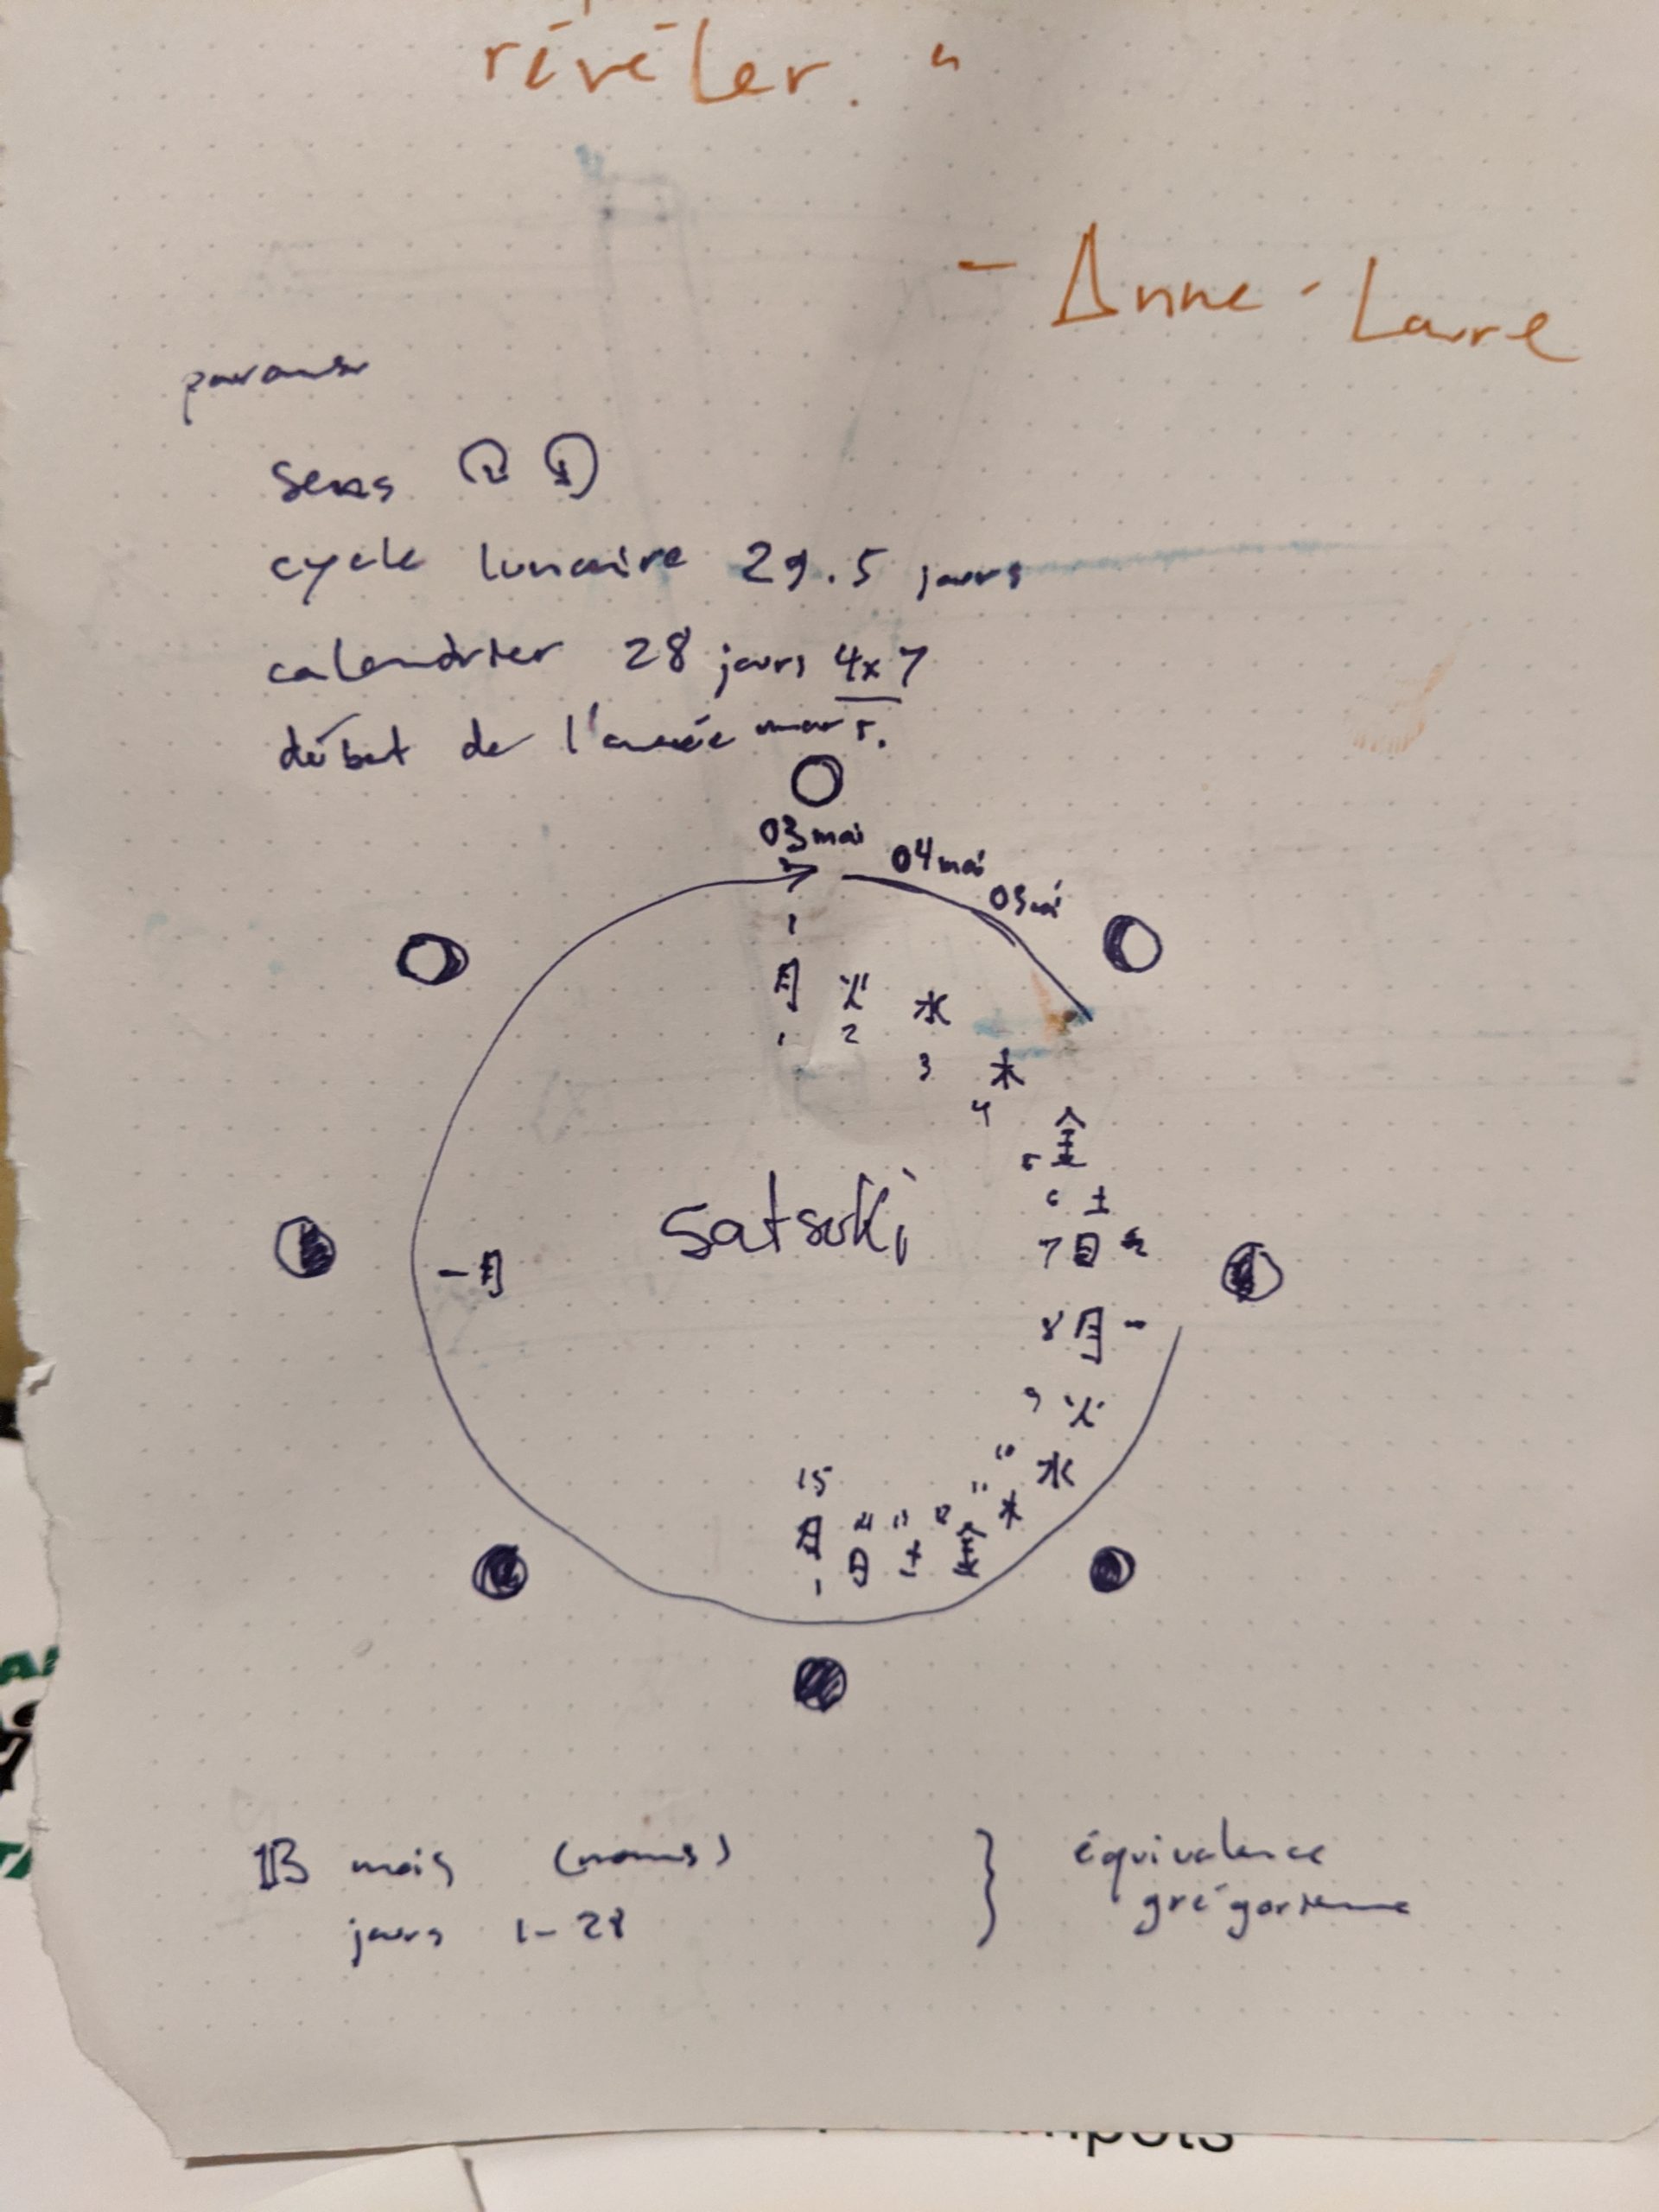 révéler."
- Anne-Laure
params
sens
cycle lunaire 29.5 jours
calendrier 28 jours 4x7
début de l'année mars.
03 mai
04 mai
05 mai
1
月 火 水 木 金 土 日
1 2 3 4 5 6 7
satsuki
一月
8 月 一
9 火
10 水
11 木
12 金
13 土
14 日
15 月
1
13 mois (noms)
jours 1-28
} équivalence
grégorienne